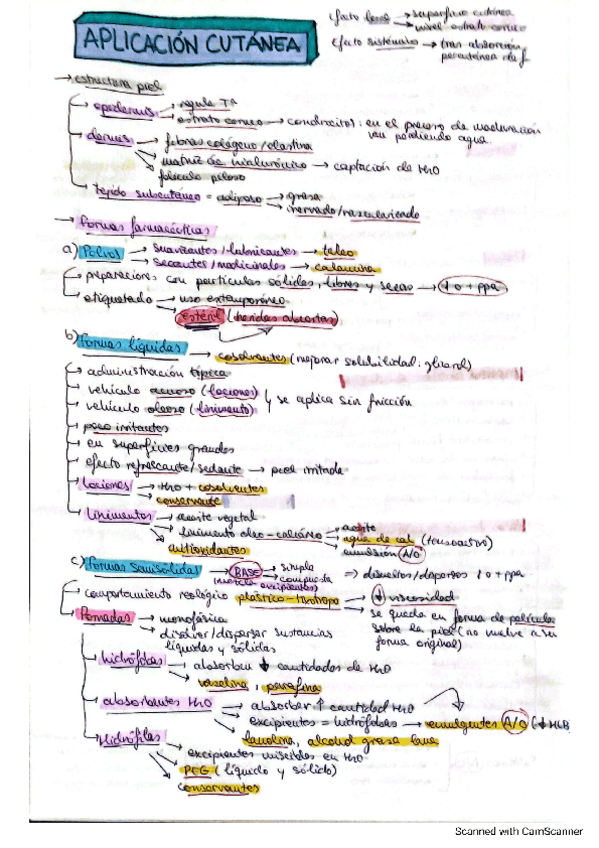 APLICACIÓN CUTÁNEA
efecto local → superficie cutánea
→ nivel estrato corneo
efecto sistémico → tras absorción
percutánea de f.
→ estructura piel
epidermis → regula Tª
→ estrato corneo → condrocitos: en el proceso de maduración
van perdiendo agua.
dermis → fibras colágeno/elastina
→ matriz de hialurónico → captación de H2O
→ folículo piloso
tejido subcutáneo = adiposo → grasa
→ inervado/vascularizado
→ Formas farmacéuticas
a) Polvos → suavizantes/lubricantes → talco
→ secantes/medicinales → calamina
preparaciones con partículas sólidas, libres y secas → 1 o + ppa
etiquetado → uso extemporáneo
→ estéril (heridas abiertas)
b) Formas líquidas → cosolventes (mejorar solubilidad: glicerol)
administración tópica
vehículo acuoso (lociones)
vehículo oleoso (linimento) y se aplica sin fricción
poco irritantes
en superficies grandes
efecto refrescante/sedante → piel irritada
Lociones → H2O + cosolventes
→ conservante
Linimentos → aceite vegetal
→ linimento oleo-calcáreo → aceite
→ agua de cal (tensoactivo)
→ emulsión A/O
→ antioxidantes
c) Formas Semisólidas → BASE → simple
→ compuesta ⇒ disueltos/dispersos 1 o + ppa
(mezcla excipientes)
comportamiento reológico plástico-tixótropo → ↓ viscosidad
→ se queda en forma de película
sobre la piel (no vuelve a su
forma original)
Pomadas → monofásica
→ disolver/dispersar sustancias
líquidas y sólidas
hidrófobas → absorben ↓ cantidades de H2O
→ vaselina, parafina
absorbentes H2O → absorber ↑ cantidad H2O
→ excipientes = hidrófobas → emulgentes A/O (↓ HLB
→ lanolina, alcohol grasa lana
Hidrófilas → excipientes miscibles en H2O
→ PEG (líquido y sólido)
→ conservantes
Scanned with CamScanner